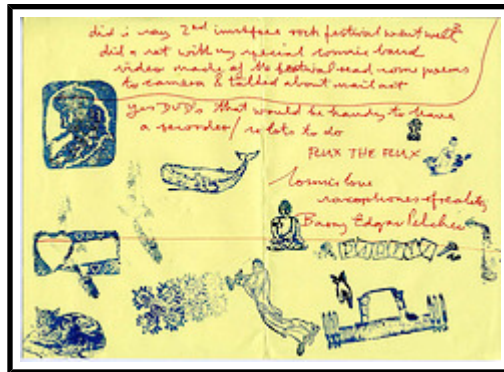 did i say 2nd inurface rock festival went well?
did a set with my special cosmic band
video made of the festival read some poems
to camera & talked about mail art
yes DVDs that would be handy to have
a recorder/ so lots to do
FLUX THE FLUX
Cosmic love
saxophones of reality
Barry Edgar Pilcher